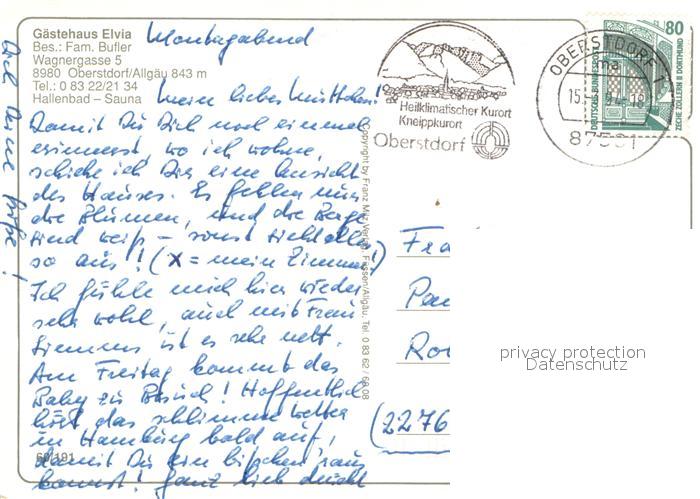 Gästehaus Elvia
Bes.: Fam. Bufler
Wagnergasse 5
8980 Oberstdorf/Allgäu 843 m
Tel.: 0 83 22/21 34
Hallenbad – Sauna
Montagabend
Mein liebes Muttchen!
Damit Du Dich noch einmal
erinnerst, wo ich wohne,
schicke ich Dir eine Ansicht
des Hauses. Es fehlen nur
die Blumen, und die Berge
sind weiß – sonst sieht alles
so aus! (x = mein Zimmer)
Ich fühle mich hier wieder
sehr wohl, auch mit Frau
Siemens ist es sehr nett.
Am Freitag kommt das
Baby zu Besuch! Hoffentlich
hört das schlimme Wetter
in Hamburg bald auf,
damit Du ein bißchen raus
kommst! Ganz lieb drückt
Dich Deine
60/191
Copyright by Franz Milz Verlag Füssen/Allgäu, Tel. 0 83 62 / 66 08
Heilklimatischer Kurort
Kneippkurort
Oberstdorf
OBERSTDORF 1
ma
15.
87561
80
DEUTSCHE BUNDESPOST
ZECHE ZOLLERN II DORTMUND
Fra
Pau
Ro
(2276
privacy protection
Datenschutz